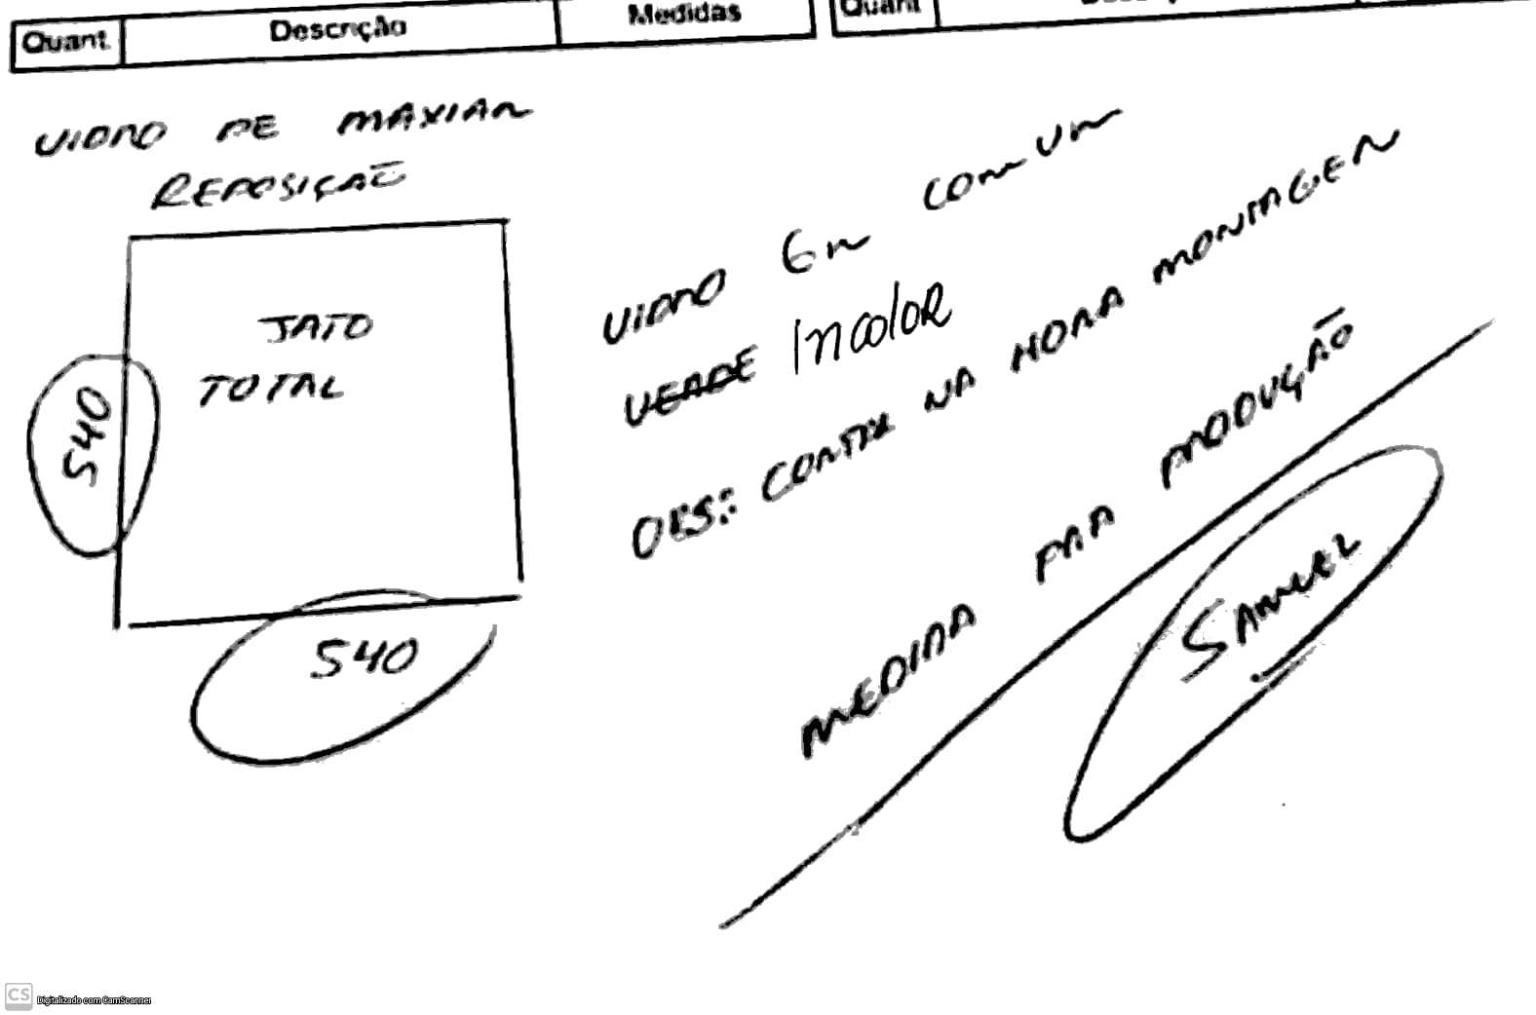 Quant.
Descrição
Medidas
Quant
VIDRO DE MAXIAR
REPOSIÇÃO
JATO
TOTAL
540
540
VIDRO 6m COMUM
VERDE Incolor
OBS: CORTAR NA HORA MONTAGEM
MEDIDA PRA PRODUÇÃO
SAMUEL
CS Digitalizado com CamScanner